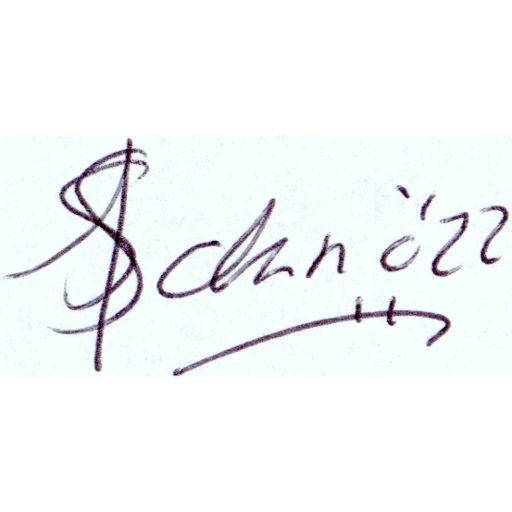 Schnözz